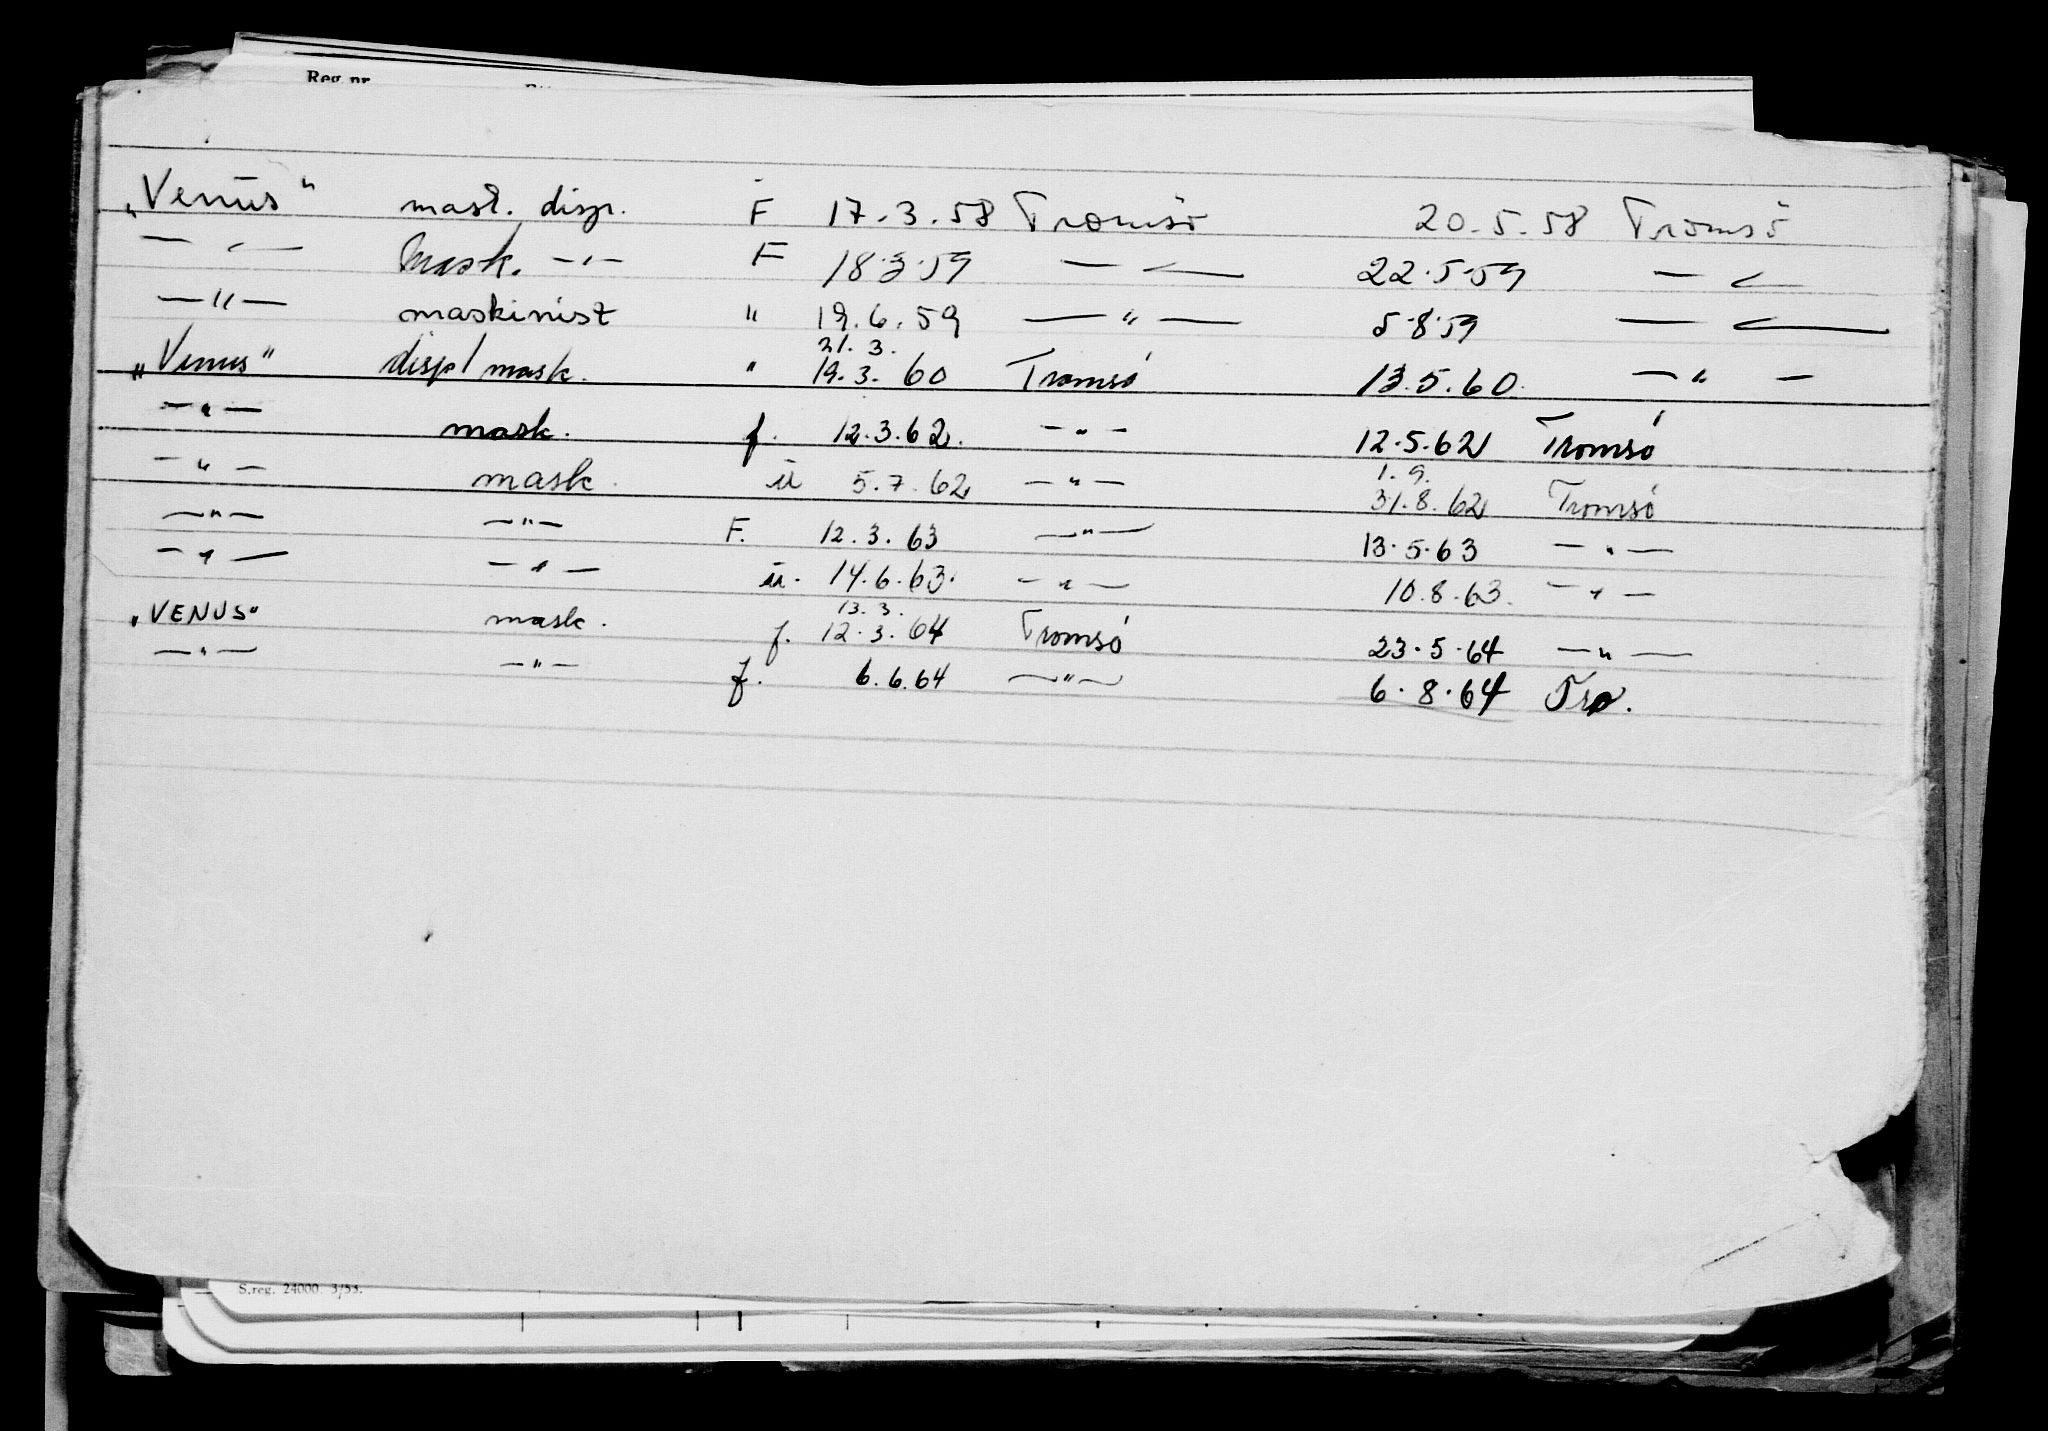 Reg. nr.
„Venus" mask. disp. F 17.3.58 Tromsö 20.5.58 Tromsö
— " — Mask. — " — F 18.3.59 — " — 22.5.59 — " —
— " — maskinist " 19.6.59 — " — 5.8.59 — " —
21. 3.
„Venus" disp/mask. " 19.3.60 Tromsö 13.5.60. — " —
— " — mask. f. 12.3.62. — " — 12.5.62 Tromsö
1. 9.
— " — mask. u 5.7.62 — " — 31.8.62 Tromsö
— " — — " — F. 12.3.63 — " — 13.5.63 — " —
— " — — " — u. 14.6.63. — " — 10.8.63. — " —
13. 3.
„VENUS" mask. f. 12.3.64 Tromsö 23.5.64 — " —
— " — — " — f. 6.6.64 — " — 6.8.64 Tro.
S.reg. 24000. 3/53.